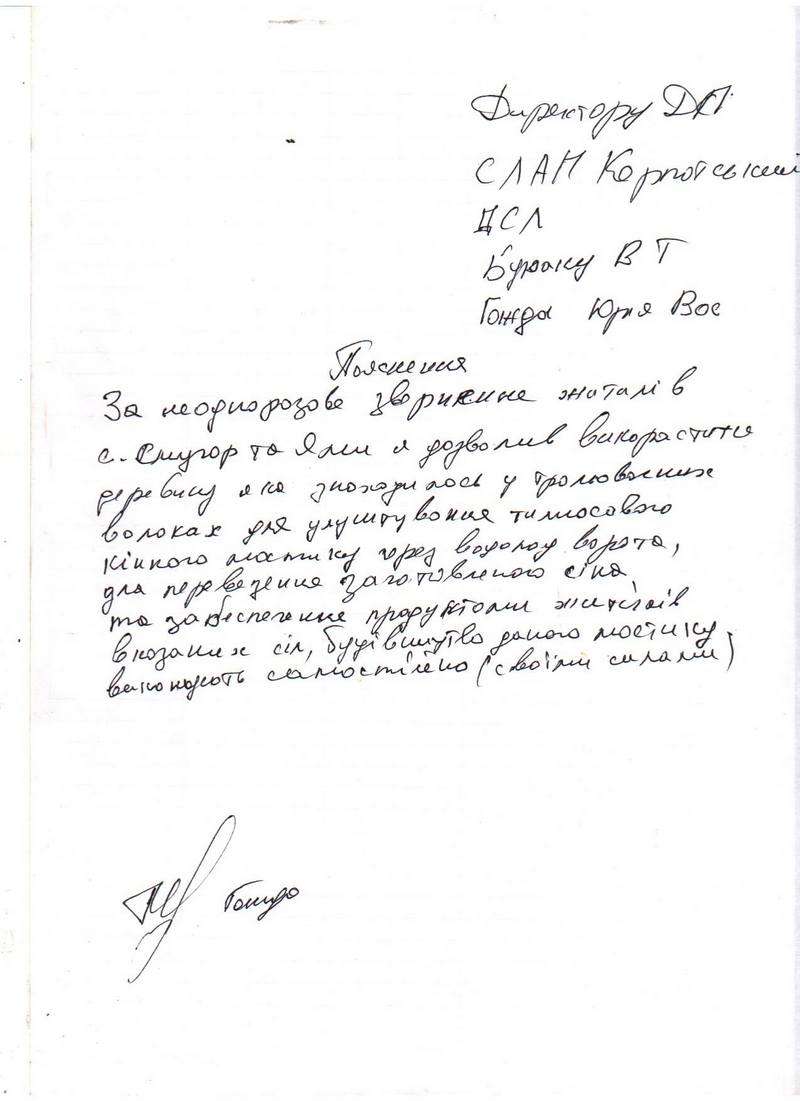 Директору ДП
СЛАП Карпатський
ДСЛ
Бураку В Т
Гонда Юрія Вас
Пояснення
За неодноразове звернення жителів
с. та Яли я дозволив використати
деревину яка знаходилось у трельовочних
волоках для улуштування тимчасового
кінного мостику через водопад ворота,
для перевезення заготовленого сіна,
та забеспечення продуктами жителів
вказаних сіл, будівництво даного мостику
виконують самостійно (своїми силами)
Гонда